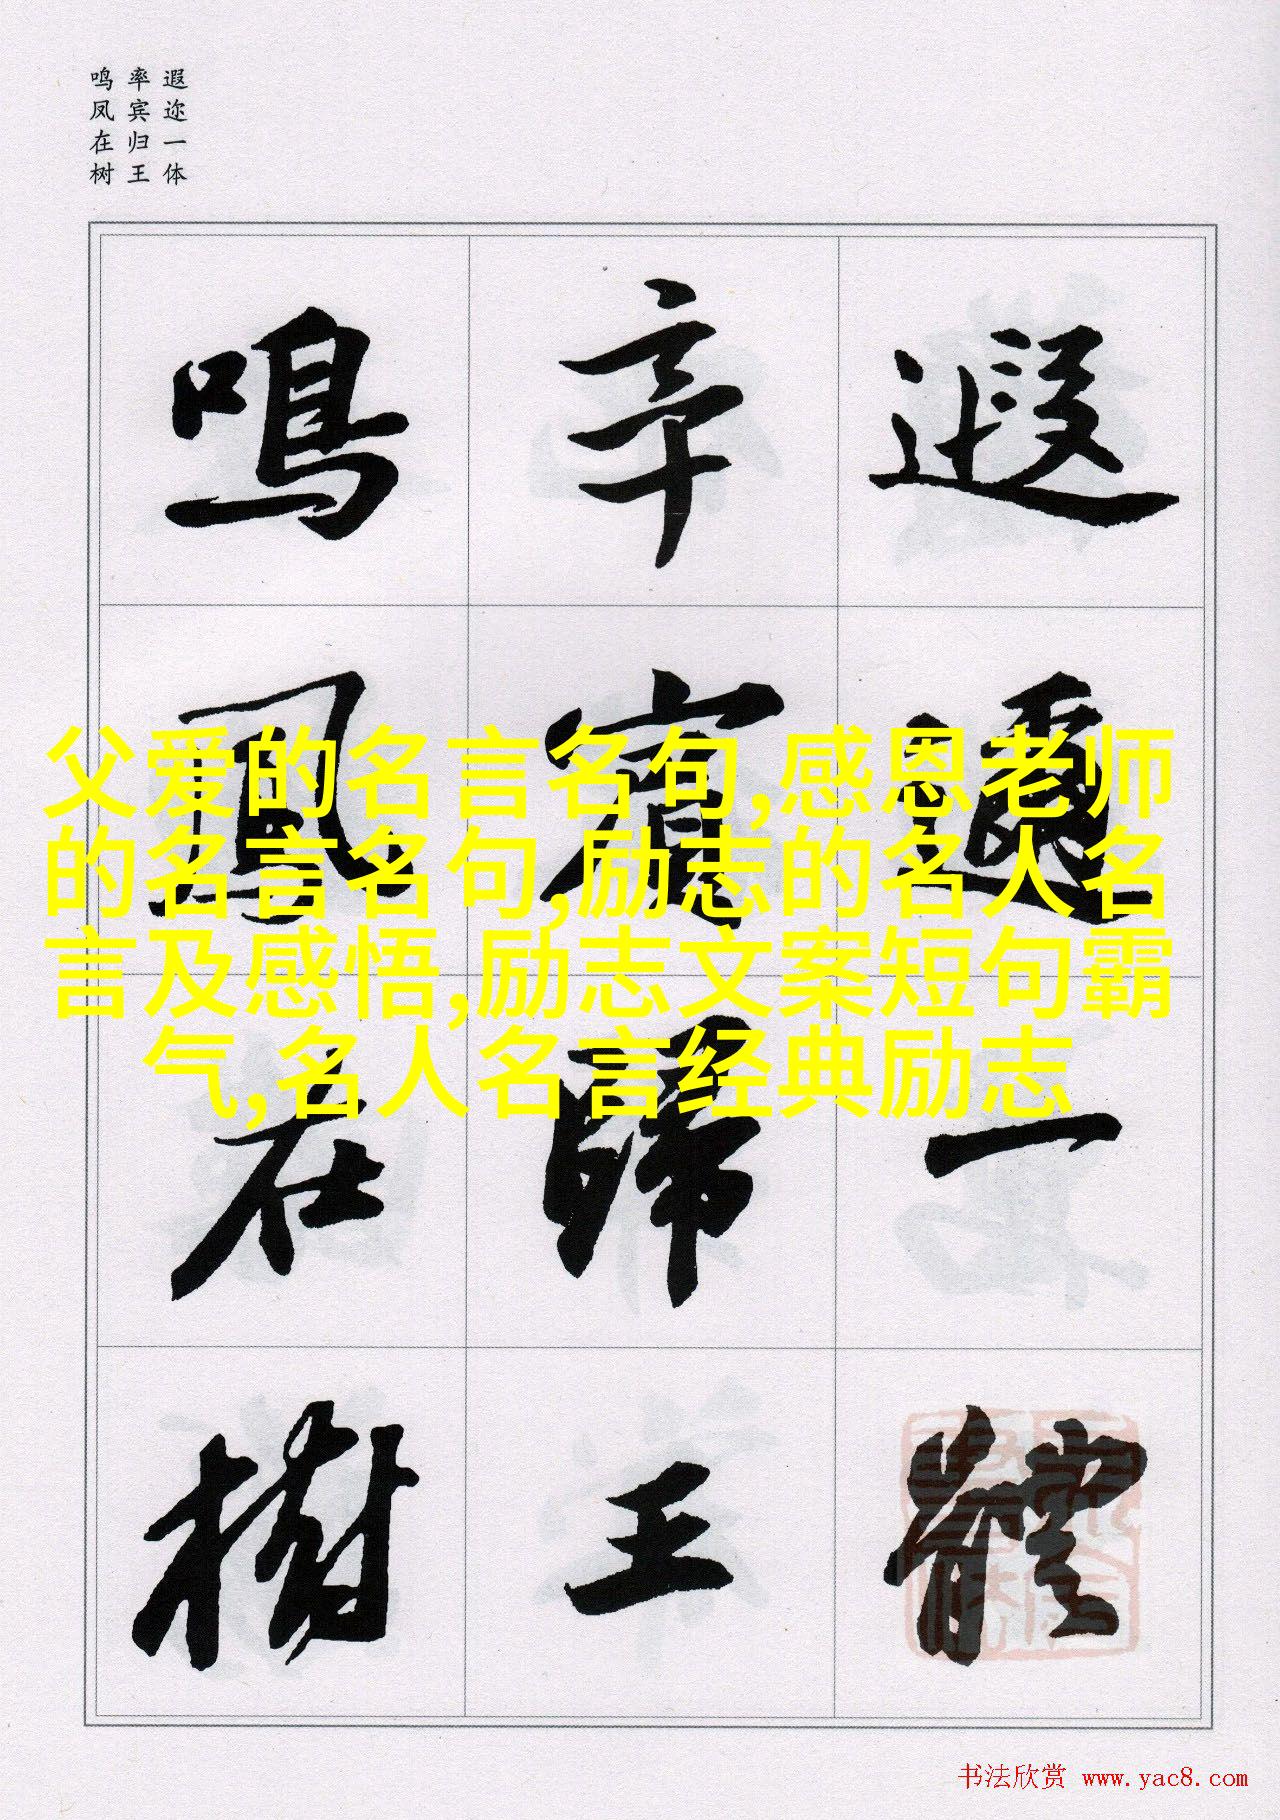 遐迩一体
率宾归王
鸣凤在树
遐邇一體
率賓歸王
鳴鳳在樹
父爱的名言名句,感恩老师
的名言名句,励志的名人名
言及感悟,励志文案短句霸
气,名人名言经典励志
书法欣赏 www.yac8.com